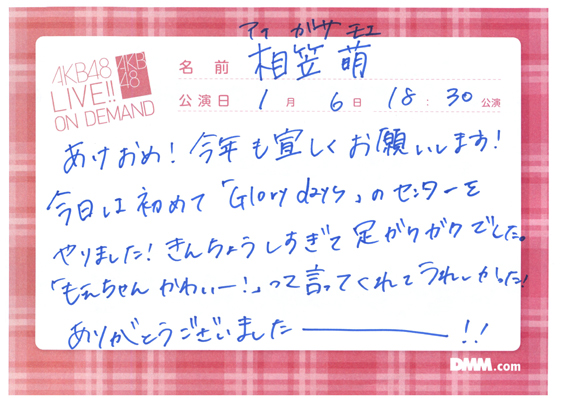 アイ ガサ モエ
AKB48
LIVE!!
ON DEMAND
AKB
48
名前 相笠 萌
公演日 1月 6日 18:30 公演
あけおめ！今年も宜しくお願いします！
今日は初めて「Glory days」のセンターを
やりました！きんちょうしすぎて足がガクガクでした。
「もえちゃんかわいー！」って言ってくれてうれしかった！
ありがとうございました――！！
DMM.com